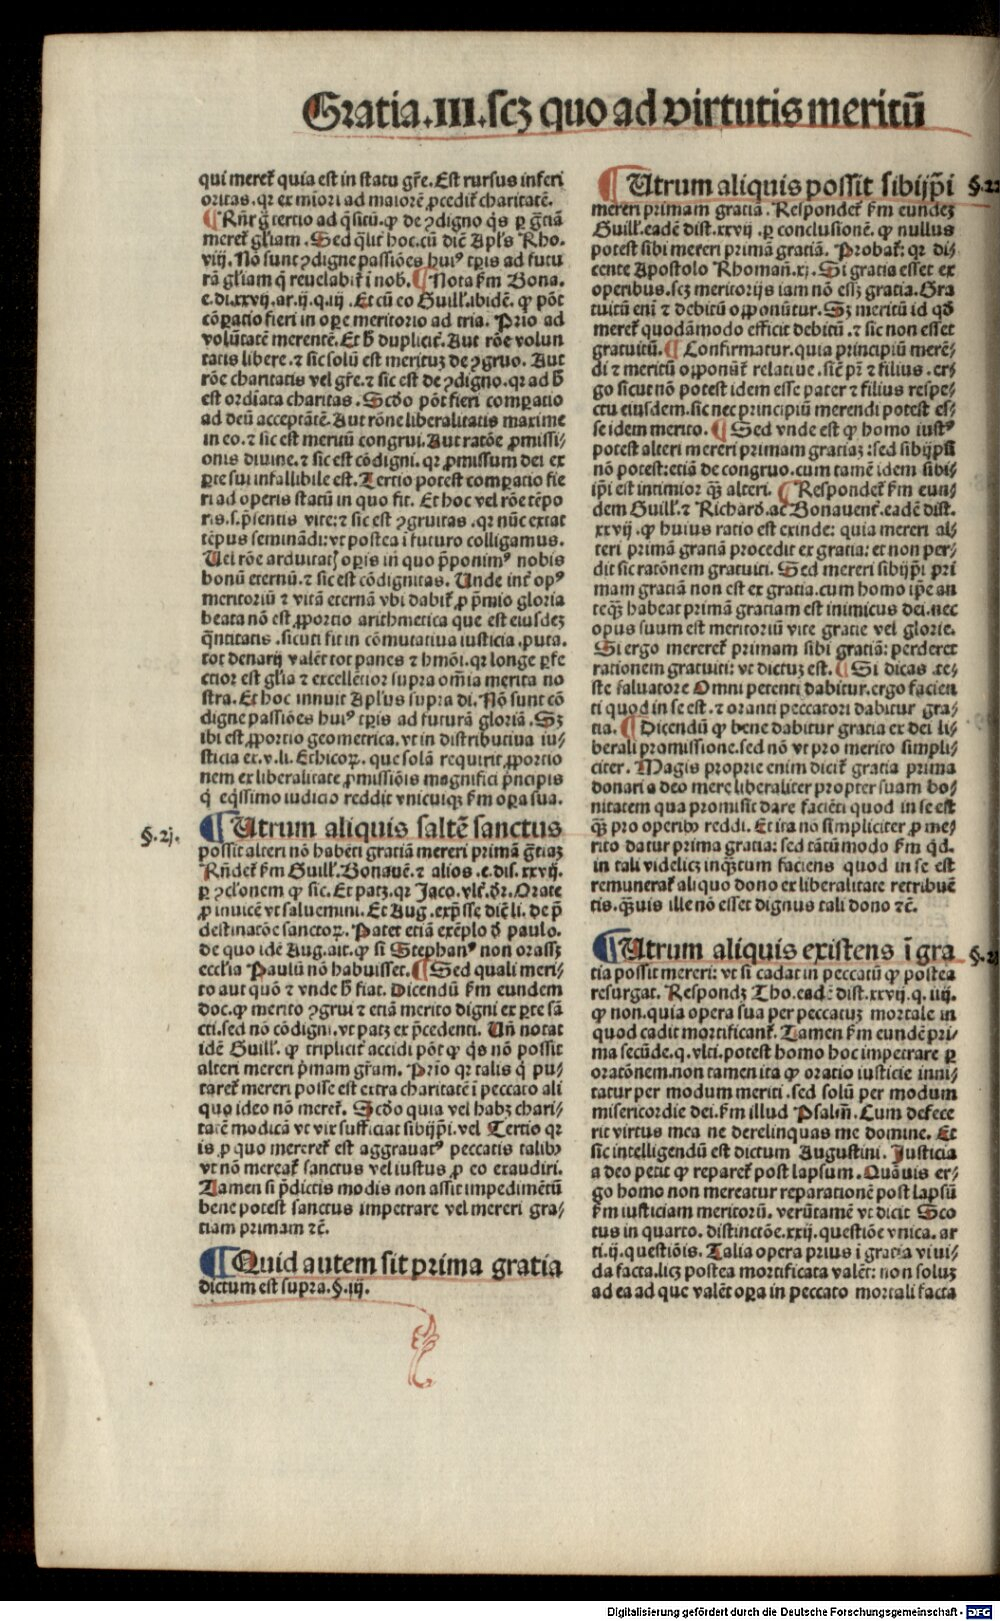 Gratia.III.scꝫ quo ad virtutis meritū
qui meret̄ quia est in statu gr̄e. Est rursus inferi
oritas. qꝛ ex miori ad maiorē ꝓcedit̄ charitatē.
¶ Rn̄r g̊ tertio ad q̄situ̅. ꝙ de ꝯdigno q̄s ꝑ gr̄am
meret̄ gl̄iam. Sed q̄lit̄ hoc. cū dic̄ Apl's Rho.
viij. Nō sunt ꝯdigne passiōes huiꝰ tꝑis ad futu
rā gl̄iam q̄ reuelabit̄ ī nob. ¶ Nota ẜm Bona.
e. di. xxvij. ar. ij. q. iij. Et cū eo Guill'. ibidē. ꝙ pōt
cōꝑatio fieri in oꝑe meritorio ad tria. Prīo ad
volūtatē merentē. Et h̄ duplicit̄. Aut rōe volun
tatis libere. ⁊ sic solū est merituꝫ de ꝯgruo. Aut
rōe charitatis vel gr̄e. ⁊ sic est de ꝯdigno. qꝛ ad h̄
est ordīata charitas. Scd̄o pōt fieri comꝑatio
ad deū acceptātē. Aut rōne liberalitatis maxime
in eo. ⁊ sic est meritū congrui. Aut ratōe ꝓmissi⸗
onis diuine. ⁊ sic est cōdigni. qꝛ ꝓmissum dei ex
ꝑte sui infallibile est. Tertio potest comꝑatio fie
ri ad operis statū in quo fit. Et hoc vel rōe tēpo
ris. s. p̄sentis vite: ⁊ sic est ꝯgruitas. qꝛ nūc extat
tēpus seminādi: vt postea ī futuro colligamus.
Uel rōe arduitatꝭ oꝑis in quo p̄ponimꝰ nobis
bonū eternū. ⁊ sic est cōdignitas. Unde int̄ opꝰ
meritoriū ⁊ vitā eternā vbi dabit̄ ꝓ p̄mio gloria
beata nō est ꝓportio arithmetica que est eiusdeꝫ
q̄ntitatis. sicuti fit in cōmutatiua iusticia. puta.
tot denarij valēt tot panes ⁊ hmōi. qꝛ longe ꝑfe
ctior est gl̄ia ⁊ excellētior supra om̄ia merita no
stra. Et hoc innuit Apl'us supra di. Nō sunt cō
digne passiōes huiꝰ tꝑis ad futurā gloriā. Sꝫ
ibi est ꝓportio geometrica. vt in distributiua iu⸗
sticia ex. v. li. Ethicoꝝ. que solā requirit ꝓportio
nem ex liberalitate ꝓmissiōis magnifici prīncipis
q̄ eq̄ssimo iudicio reddit vnicuiqꝫ ẜm oꝑa sua.
§.xj.
¶ Utrum aliquis saltē sanctus
possit alteri nō habēti gratiā mereri primā gr̄tiaꝫ
Rn̄det̄ ẜm Guill'. Bonauē. ⁊ alios. e. dis. xxvij.
ꝑ ꝯcl'onem ꝙ sic. Et patꝫ. qꝛ Jaco. vlt̄. dr̄. Orate
ꝓ inuicē vt saluemini. Et Aug. exp̄sse dic̄ li. de p̄
destinatōe sanctoꝝ. Patet etiā exēplo d̄ paulo.
de quo idē Aug. ait. ꝙ si Stephanꝰ non orassꝫ
eccl'ia Paulū nō habuisset. ¶ Sed quali meri⸗
to aut quō ⁊ vnde h̄ fiat. Dicendū ẜm eundem
doc. ꝙ merito ꝯgrui ⁊ etiā merito digni ex ꝑte sā
cti. sed nō cōdigni. vt patꝫ ex p̄cedenti. Un̄ notat
idē Guill'. ꝙ triplicit̄ accidi pōt ꝙ q̄s nō possit
alteri mereri p̄mam gr̄am. Prīo qꝛ talis q̄ pu⸗
taret̄ mereri posse est extra charitatē ī peccato ali
quo ideo nō meret̄. Scd̄o quia vel habꝫ chari⸗
tatē modicā vt vix sufficiat sibijp̄i. vel Tertio qꝛ
is ꝓ quo mereret̄ est aggrauatꝰ peccatis talibꝫ
vt nō mereat̄ sanctus vel iustus ꝓ eo exaudiri.
Tamen si p̄dictis modis non assit impedimētū
bene potest sanctus impetrare vel mereri gra⸗
tiam primam ⁊c̄.
¶ Quid autem sit prima gratia
dictum est supra. §. iij.
¶ Utrum aliquis possit sibijp̄i
mereri primam gratiā. Respondet̄ ẜm eundeꝫ
Guill'. eadē dist. xxvij. ꝑ conclusionē. ꝙ nullus
potest sibi mereri primā gratiā. Probat̄: qꝛ di⸗
cente Apostolo Rhoman̄. xj. Si gratia esset ex
operibus. scꝫ meritorijs iam nō essꝫ gratia. Gra
tuitū eni ⁊ debitū opponūtur. Sꝫ meritū id qd̄
meret̄ quodāmodo efficit debitū. ⁊ sic non esset
gratuitū. ¶ Confirmatur. quia principiū merē⸗
di ⁊ meritū opponūt̄ relatiue. sicut pr̄ ⁊ filius. er⸗
go sicut nō potest idem esse pater ⁊ filius respe⸗
ctu eiusdem. sic nec principiū merendi potest es⸗
se idem merito. ¶ Sed vnde est ꝙ homo iustꝰ
potest alteri mereri primam gratiaꝫ: sed sibijpsi
nō potest: etiā de congruo. cum tamē idem sibi⸗
ip̄i est intimior qꝫ alteri. ¶ Respondet̄ ẜm eun⸗
dem Guill'. ⁊ Richard. ac Bonauent̄. eadē dist.
xxvij. ꝙ huius ratio est exinde: quia mereri al⸗
teri primā gratiā procedit ex gratia: et non per⸗
dit sic ratōnem gratuiti. Sed mereri sibijp̄i pri
mam gratiā non est ex gratia. cum homo ip̄e an
teqꝫ habeat primā gratiam est inimicus dei. nec
opus suum est meritoriū vite gratie vel glorie.
Si ergo mereret̄ primam sibi gratiā: perderet
rationem gratuiti: vt dictuꝫ est. ¶ Si dicas. te⸗
ste saluatore Omni petenti dabitur. ergo facien
ti quod in se est. ⁊ oranti peccatori dabitur gra⸗
tia. ¶ Dicendū ꝙ bene dabitur gratia ex dei li⸗
berali promissione. sed nō vt pro merito simpli⸗
citer. Magis proprie enim dicit̄ gratia prima
donari a deo mere liberaliter propter suam bo⸗
nitatem qua promisit dare faciēti quod in se est
qꝫ pro operibꝫ reddi. Et ita nō simpliciter ꝓ me⸗
rito datur prima gratia: sed tātūmodo ẜm qd.
in tali videlicꝫ inqꝫtum faciens quod in se est
remunerat̄ aliquo dono ex liberalitate retribuē
tis. qꝫuis ille nō esset dignus tali dono ⁊c̄.
¶ Utrum aliquis existens ī gra
tia possit mereri: vt si cadat in peccatū ꝙ postea
resurgat. Respondꝫ Tho. eadē dist. xxvij. q. iiij.
ꝙ non. quia opera sua per peccatuꝫ mortale in
quod cadit mortificant̄. Tamen ẜm eundē pri⸗
ma secūde. q. vlti. potest homo hoc impetrare ꝑ
oratōnem. non tamen ita ꝙ oratio iusticie inni⸗
tatur per modum meriti. sed solū per modum
misericordie dei. ẜm illud Psalm̄. Cum defece
rit virtus mea ne derelinquas me domine. Et
sic intelligendū est dictum Augustini. Justicia
a deo petit ꝙ reparet̄ post lapsum. Quāuis er⸗
go homo non mereatur reparationē post lapsū
ẜm iusticiam meritorū. verūtamē vt dicit Sco
tus in quarto. distinctōe. xxij. questiōe vnica. ar
ti. ij. questiōis. Talia opera prius ī gratia viui⸗
da facta. licꝫ postea mortificata valēt: non soluꝫ
ad ea ad que valēt oꝑa in peccato mortali facta
Digitalisierung gefördert durch die Deutsche Forschungsgemeinschaft - DFG